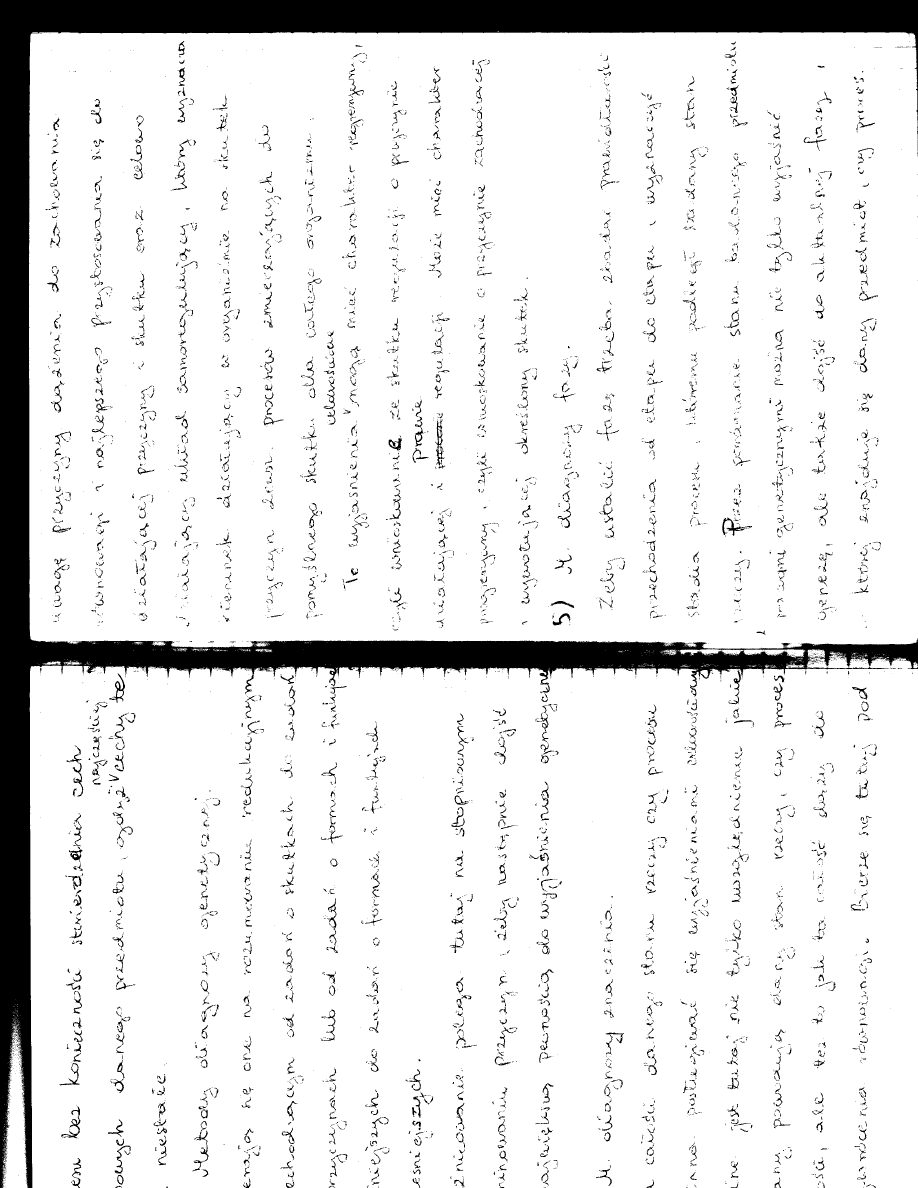 em bez konieczności stwierdzenia cech
najczęściej
owych danego przedmiotu, gdyż cechy te
niestałe.
Metody diagnozy genetycznej.
erają się one na rozumowaniu redukcyjnym
echodzącym od zadań o skutkach do zadań
przyczynach lub od zadań o formach i funkcjach
niejszych do zadań o formach i funkcjach
eśniejszych.
żnicowanie polega tutaj na stopniowym
minowaniu przyczyn, żeby następnie dojść
największą pewnością do wyjaśnienia genetycznego
M. diagnozy znaczenia.
całości danego stanu rzeczy czy procesu
posługiwać się wyjaśnieniami celowościowymi
jest tutaj nie tylko uwzględnienie jakie
powodują dany stan rzeczy, czy proces
ości, ale też to jak ta całość dąży do
równowagi. Bierze się tutaj pod
uwagę przyczyny dążenia do zachowania
równowagi i najlepszego przystosowania się do
działającej przyczyny i skutku oraz celowo
działający układ samoregulujący, który wyznacza
kierunek działający w organizmie na skutek
przyczyn zmierzających do
procesów
pomyślnego skutku dla całego organizmu.
celowościowe
Te wyjaśnienia mogą mieć charakter regresywny,
czyli wnioskowanie ze skutku regulacji o przyczynie
prawie
działającej i regulacji. Może mieć charakter
progresywny, czyli wnioskowanie o przyczynie zachodzącej
i wywołującej określony skutek.
5) M. diagnozy fazy.
Żeby ustalić fazę trzeba zbadać prawidłowości
przechodzenia od etapu do etapu i wyznaczyć
stadia procesu, któremu podlegał badany stan
rzeczy. Przez porównanie stanu badanego przedmiotu
z genetycznymi można nie tylko wyjaśnić
genezę, ale także dojść do aktualnej fazy,
w której znajduje się dany przedmiot, czy proces.